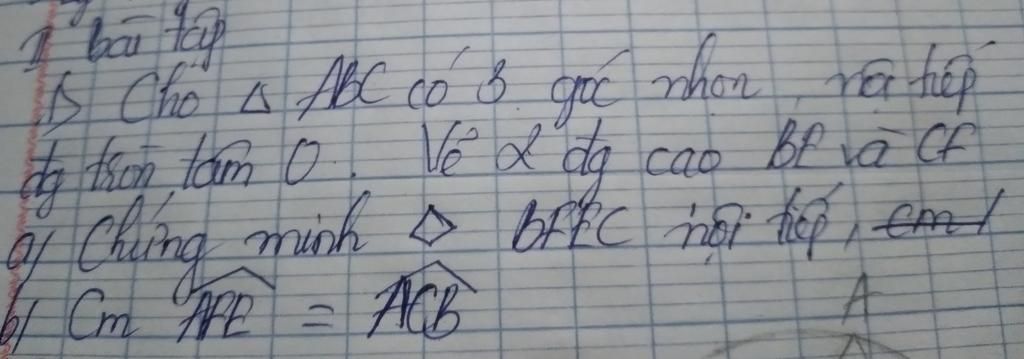 I bài tập
1) Cho Δ ABC có 3 góc nhọn nội tiếp
đg tròn tâm O. Vẽ 2 đg cao BE và CF
a) Chứng minh ◇ BFEC nội tiếp,
b) Cm AFE = ACB
A